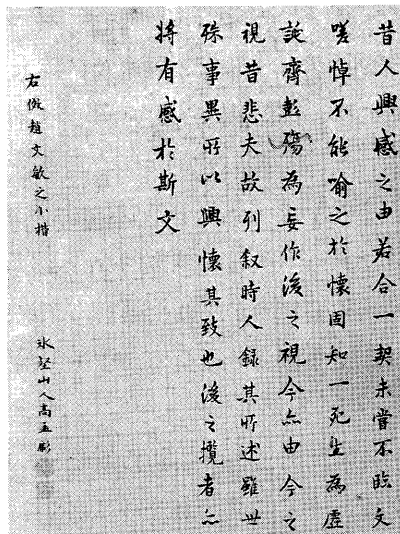 昔人興感之由若合一契未嘗不臨文
嗟悼不能喻之於懷固知一死生為虛
誕齊彭殤為妄作後之視今亦由今之
視昔悲夫故列叙時人錄其所述雖世
殊事異所以興懷其致也後之攬者亦
將有感於斯文
右倣趙文敏之小楷
氷壑山人高